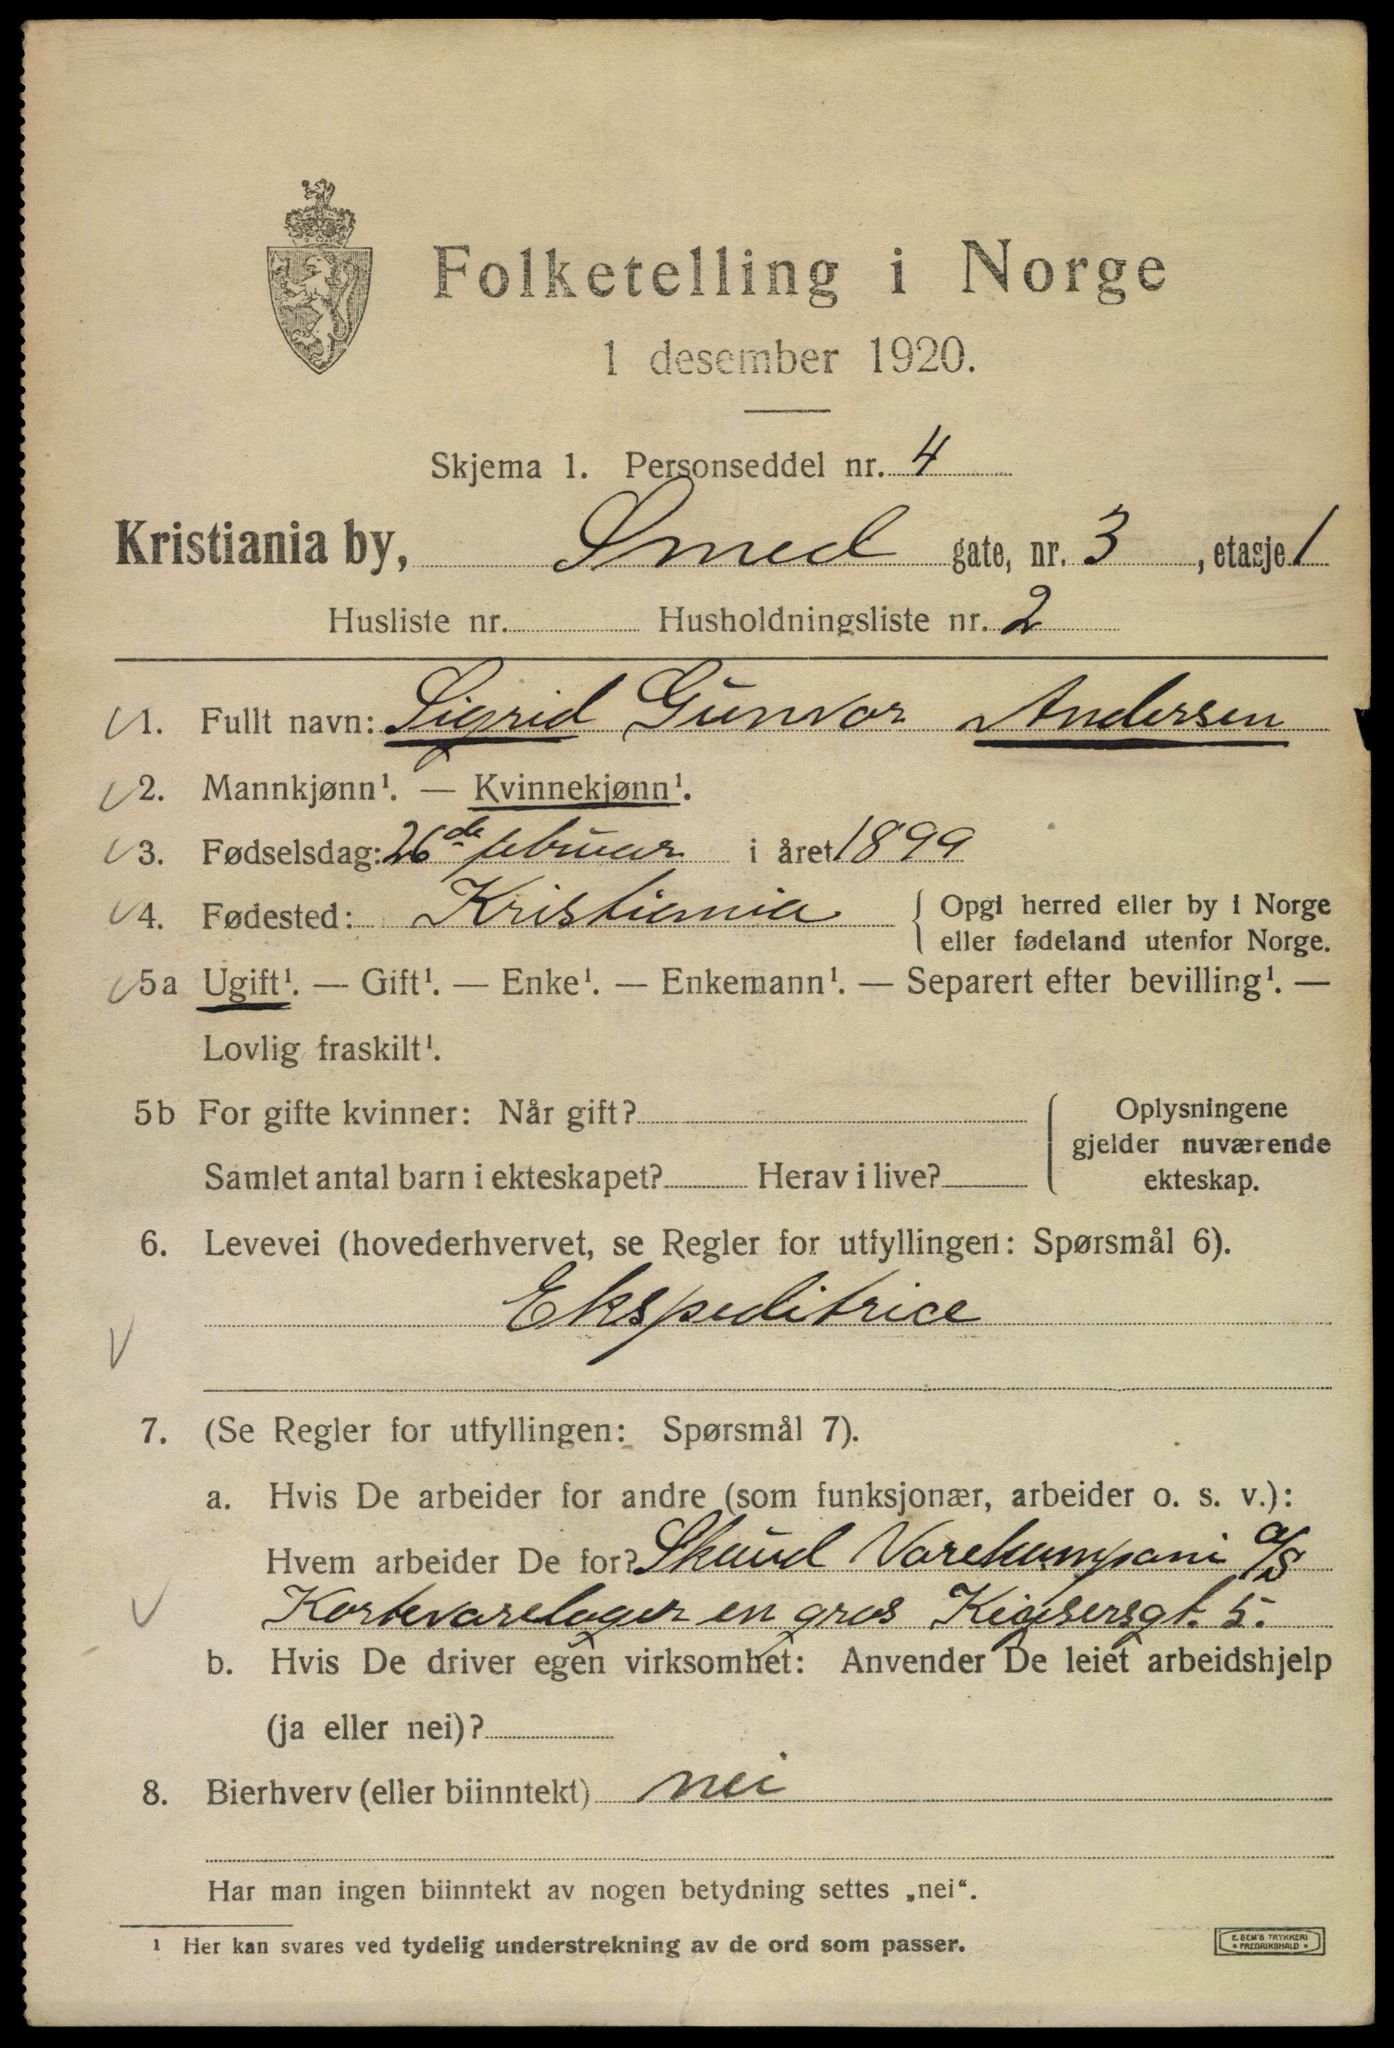 Folketelling i Norge
1 desember 1920.
Skjema 1. Personseddel nr. 4
Kristiania by, Smed gate, nr. 3, etasje 1
Husliste nr. Husholdningsliste nr. 2
1. Fullt navn: Sigrid Gunvor Andersen
2. Mannkjønn¹. — Kvinnekjønn¹.
3. Fødselsdag: 26de februar i året 1899
4. Fødested: Kristiania { Opgi herred eller by i Norge
eller fødeland utenfor Norge.
5a Ugift¹. — Gift¹. — Enke¹. — Enkemann¹. — Separert efter bevilling¹. —
Lovlig fraskilt¹.
5b For gifte kvinner: Når gift? { Oplysningene
gjelder nuværende
Samlet antal barn i ekteskapet? Herav i live? ekteskap.
6. Levevei (hovederhvervet, se Regler for utfyllingen: Spørsmål 6).
Ekspeditrice
7. (Se Regler for utfyllingen: Spørsmål 7).
a. Hvis De arbeider for andre (som funksjonær, arbeider o. s. v.):
Hvem arbeider De for? Skaud Varekompani a/s
Kortevarelager en gros Keysersgt. 5.
b. Hvis De driver egen virksomhet: Anvender De leiet arbeidshjelp
(ja eller nei)?
8. Bierhverv (eller biinntekt) nei
Har man ingen biinntekt av nogen betydning settes „nei“.
¹ Her kan svares ved tydelig understrekning av de ord som passer.
E. SEM'S TRYKKERI
• FREDRIKSHALD •